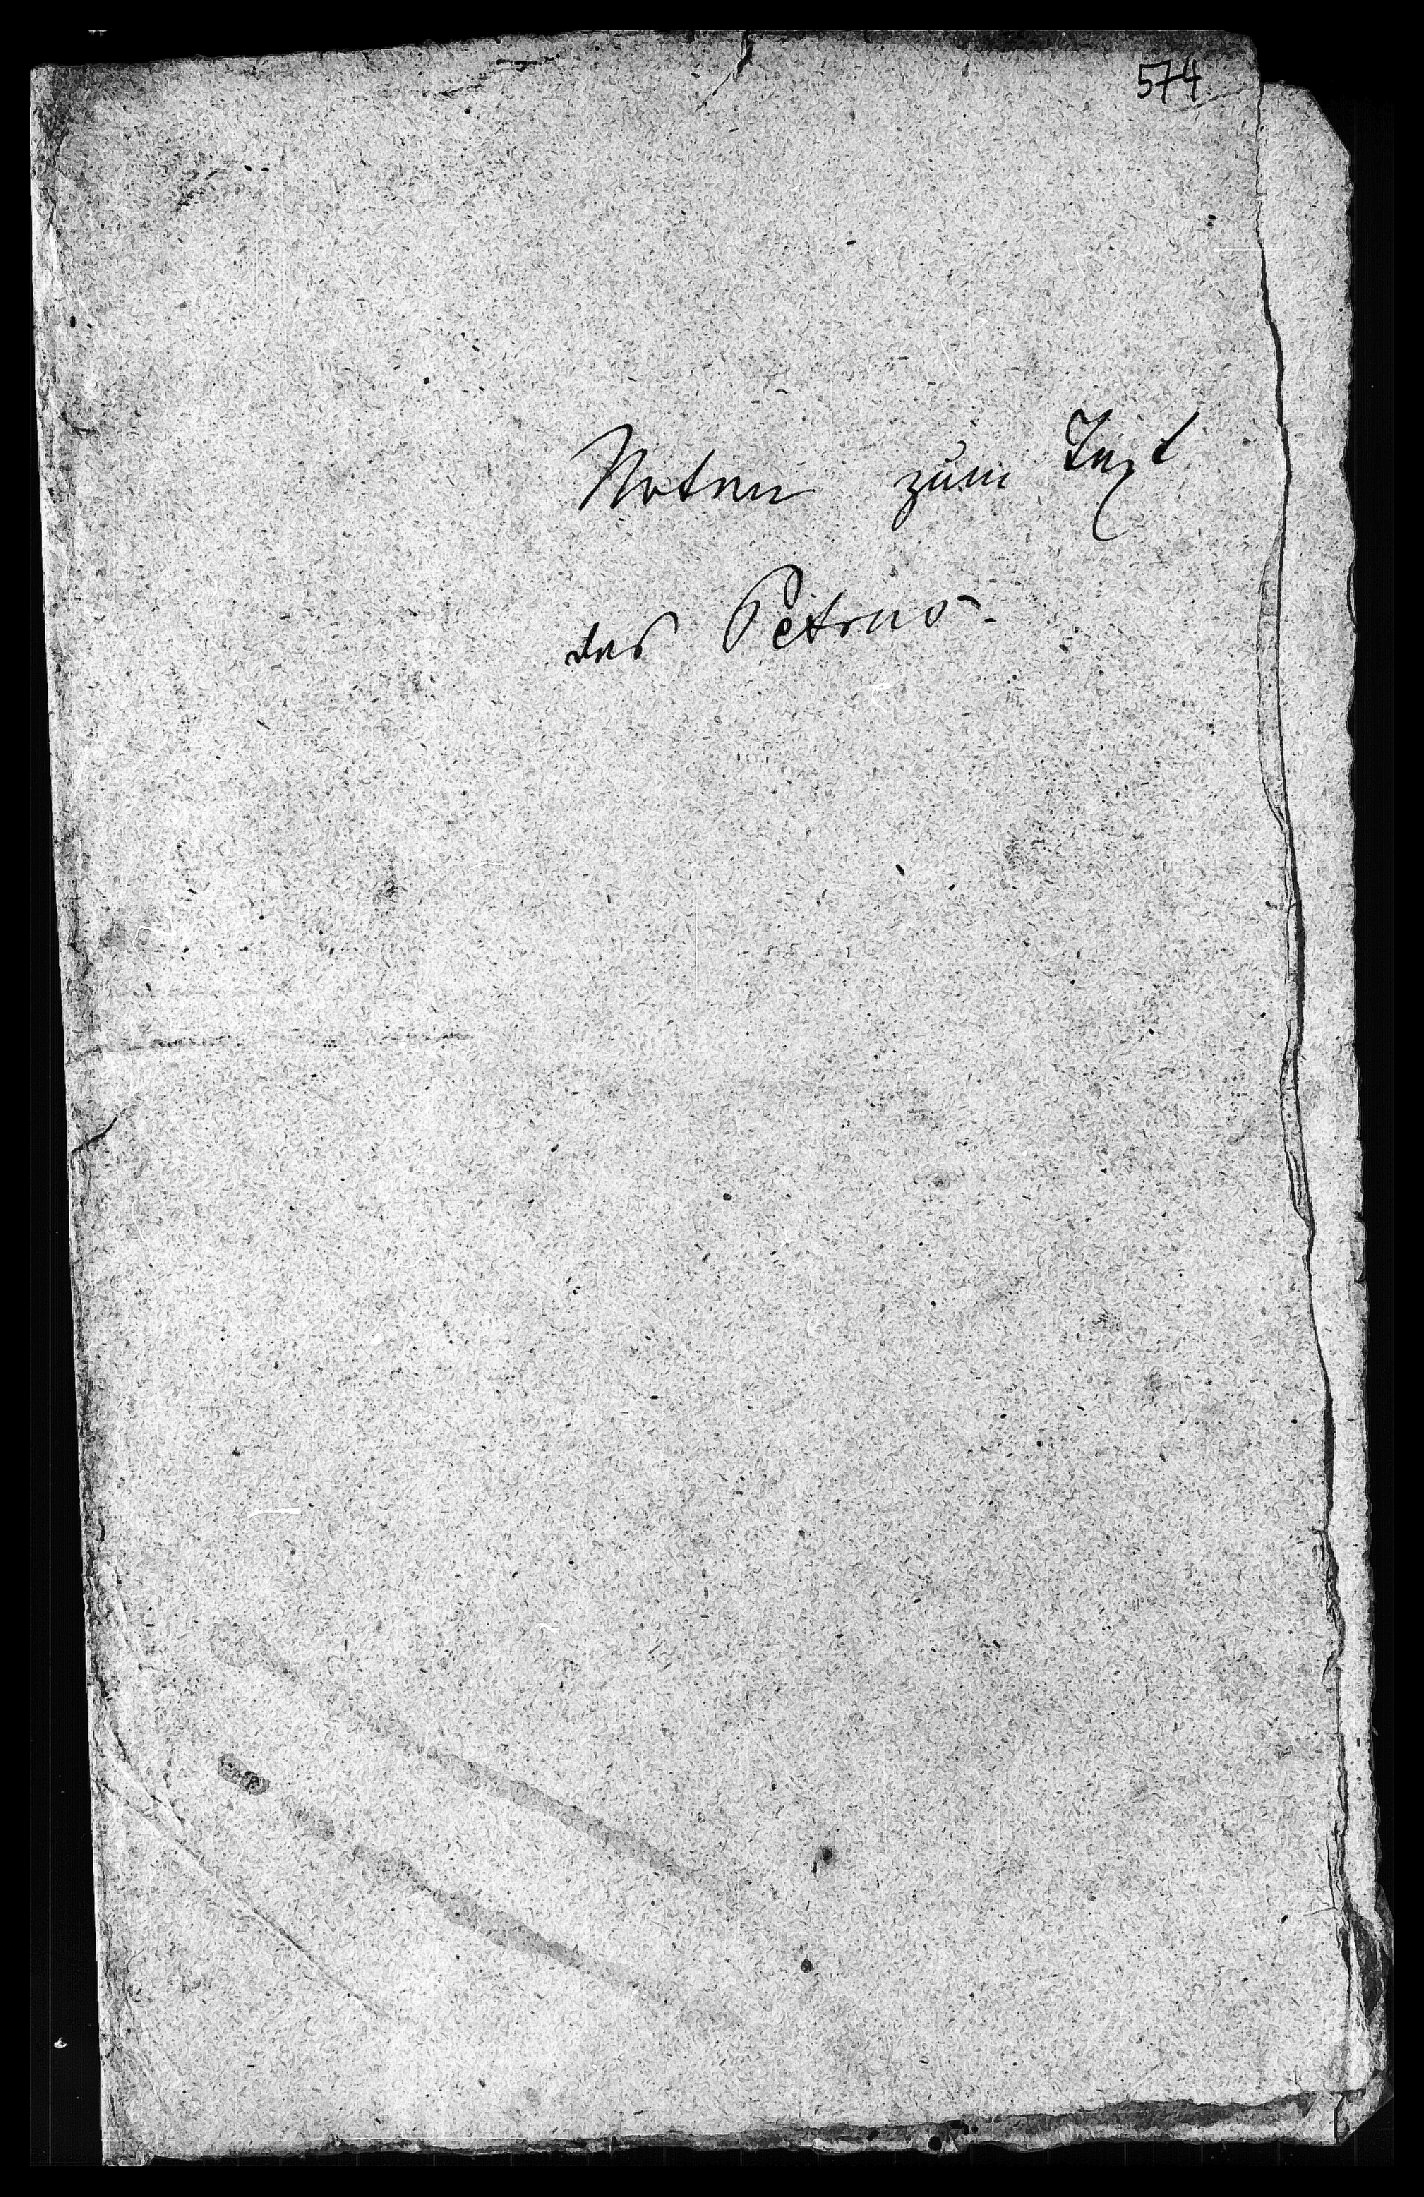 574
Noten zum Text
des Petrus.